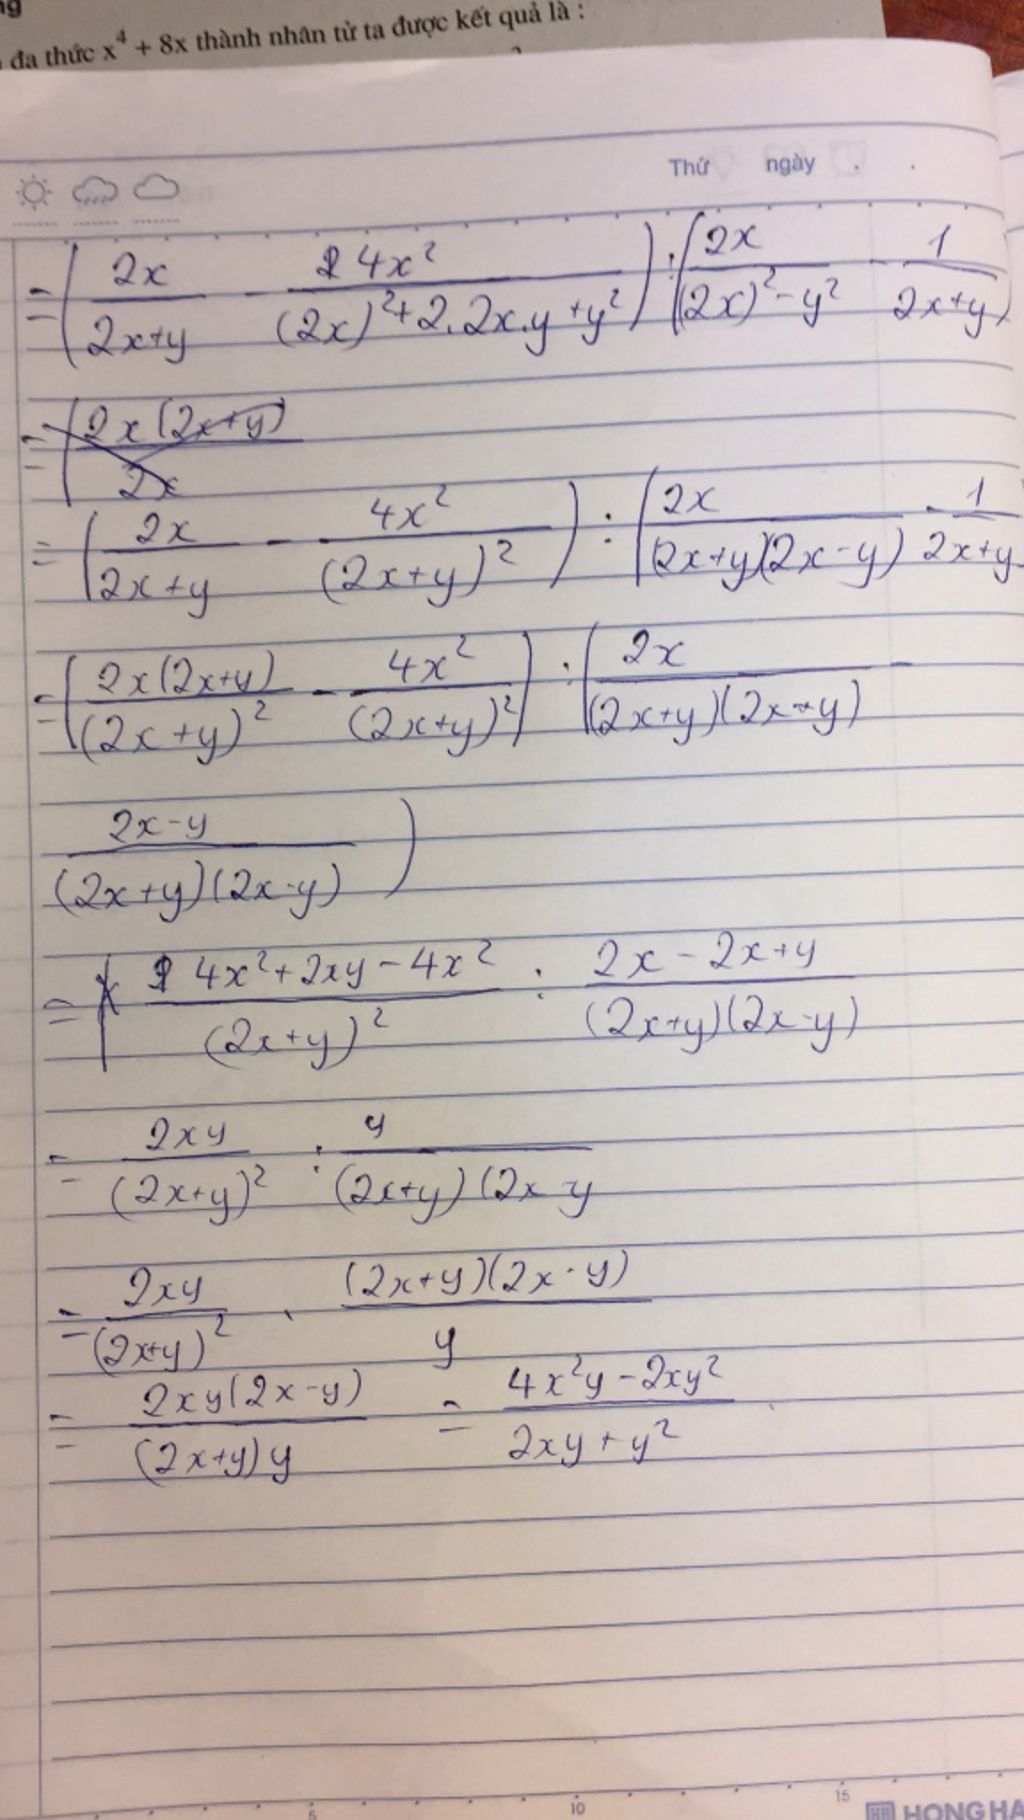 đa thức x⁴ + 8x thành nhân tử ta được kết quả là :
Thứ ngày
= (2x/(2x+y) - 4x²/((2x)²+2.2x.y+y²)) : (2x/((2x)²-y²) - 1/(2x+y))
= (2x(2x+y)/2x
= (2x/(2x+y) - 4x²/(2x+y)²) : (2x/((2x+y)(2x-y)) - 1/(2x+y)
= (2x(2x+y)/(2x+y)² - 4x²/(2x+y)²) : (2x/((2x+y)(2x-y)) -
(2x-y)/((2x+y)(2x-y)))
= (4x²+2xy-4x²)/(2x+y)² : (2x-2x+y)/((2x+y)(2x-y))
= 2xy/(2x+y)² : y/((2x+y)(2x-y
= 2xy/(2x+y)² . (2x+y)(2x-y)/y
= 2xy(2x-y)/((2x+y)y) = (4x²y-2xy²)/(2xy+y²)
5 10 15
HONG HA